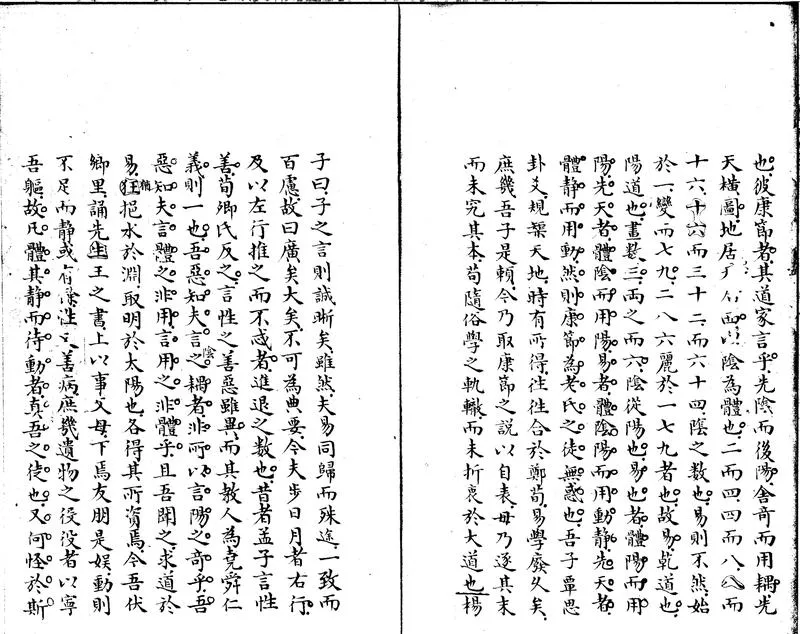 也彼康節者其道家言乎先陰而後陽舍奇而用耦先
天橫圖地居西以陰為體也二而四四而八八而
十六十六而三十二而六十四陰之數也易則不然始
於一變而七九二八六麗於一七九者也故易乾道也
陽道也畫數三兩之而六陰從陽也易也者體陽而用
陽先天者體陰而用陽易者體陰陽而用動靜先天者
體靜而用動然則康節為老氏之徒無惑也吾子覃思
卦爻規槩天地時有所得往往合於鄭荀易學廢久矣
庶幾吾子是賴今乃取康節之說以自表毋乃逐其末
而未究其本苟隨俗學之軌轍而未折衷於大道也楊
子曰子之言則誠晰矣雖然夫易同歸而殊途一致而
百慮故曰廣矣大矣不可為典要今夫步日月者右行
及以左行推之而不忒者進退之數也昔者孟子言性
善荀卿氏反之言性之善惡雖異而其教人為堯舜仁
義則一也吾惡知夫言陰之耦者非所以言陽之奇乎吾
惡知夫言體之非用言用之非體乎且吾聞之求道於
易猶挹水於淵取明於太陽也各得其所資焉今吾伏
鄉里誦先王之書上以事父母下焉友朋是娛動則
不足而靜或有餘性善病庶幾遺物之役役者以寧
吾軀故凡體其靜而待動者真吾之徒也又何怪於斯